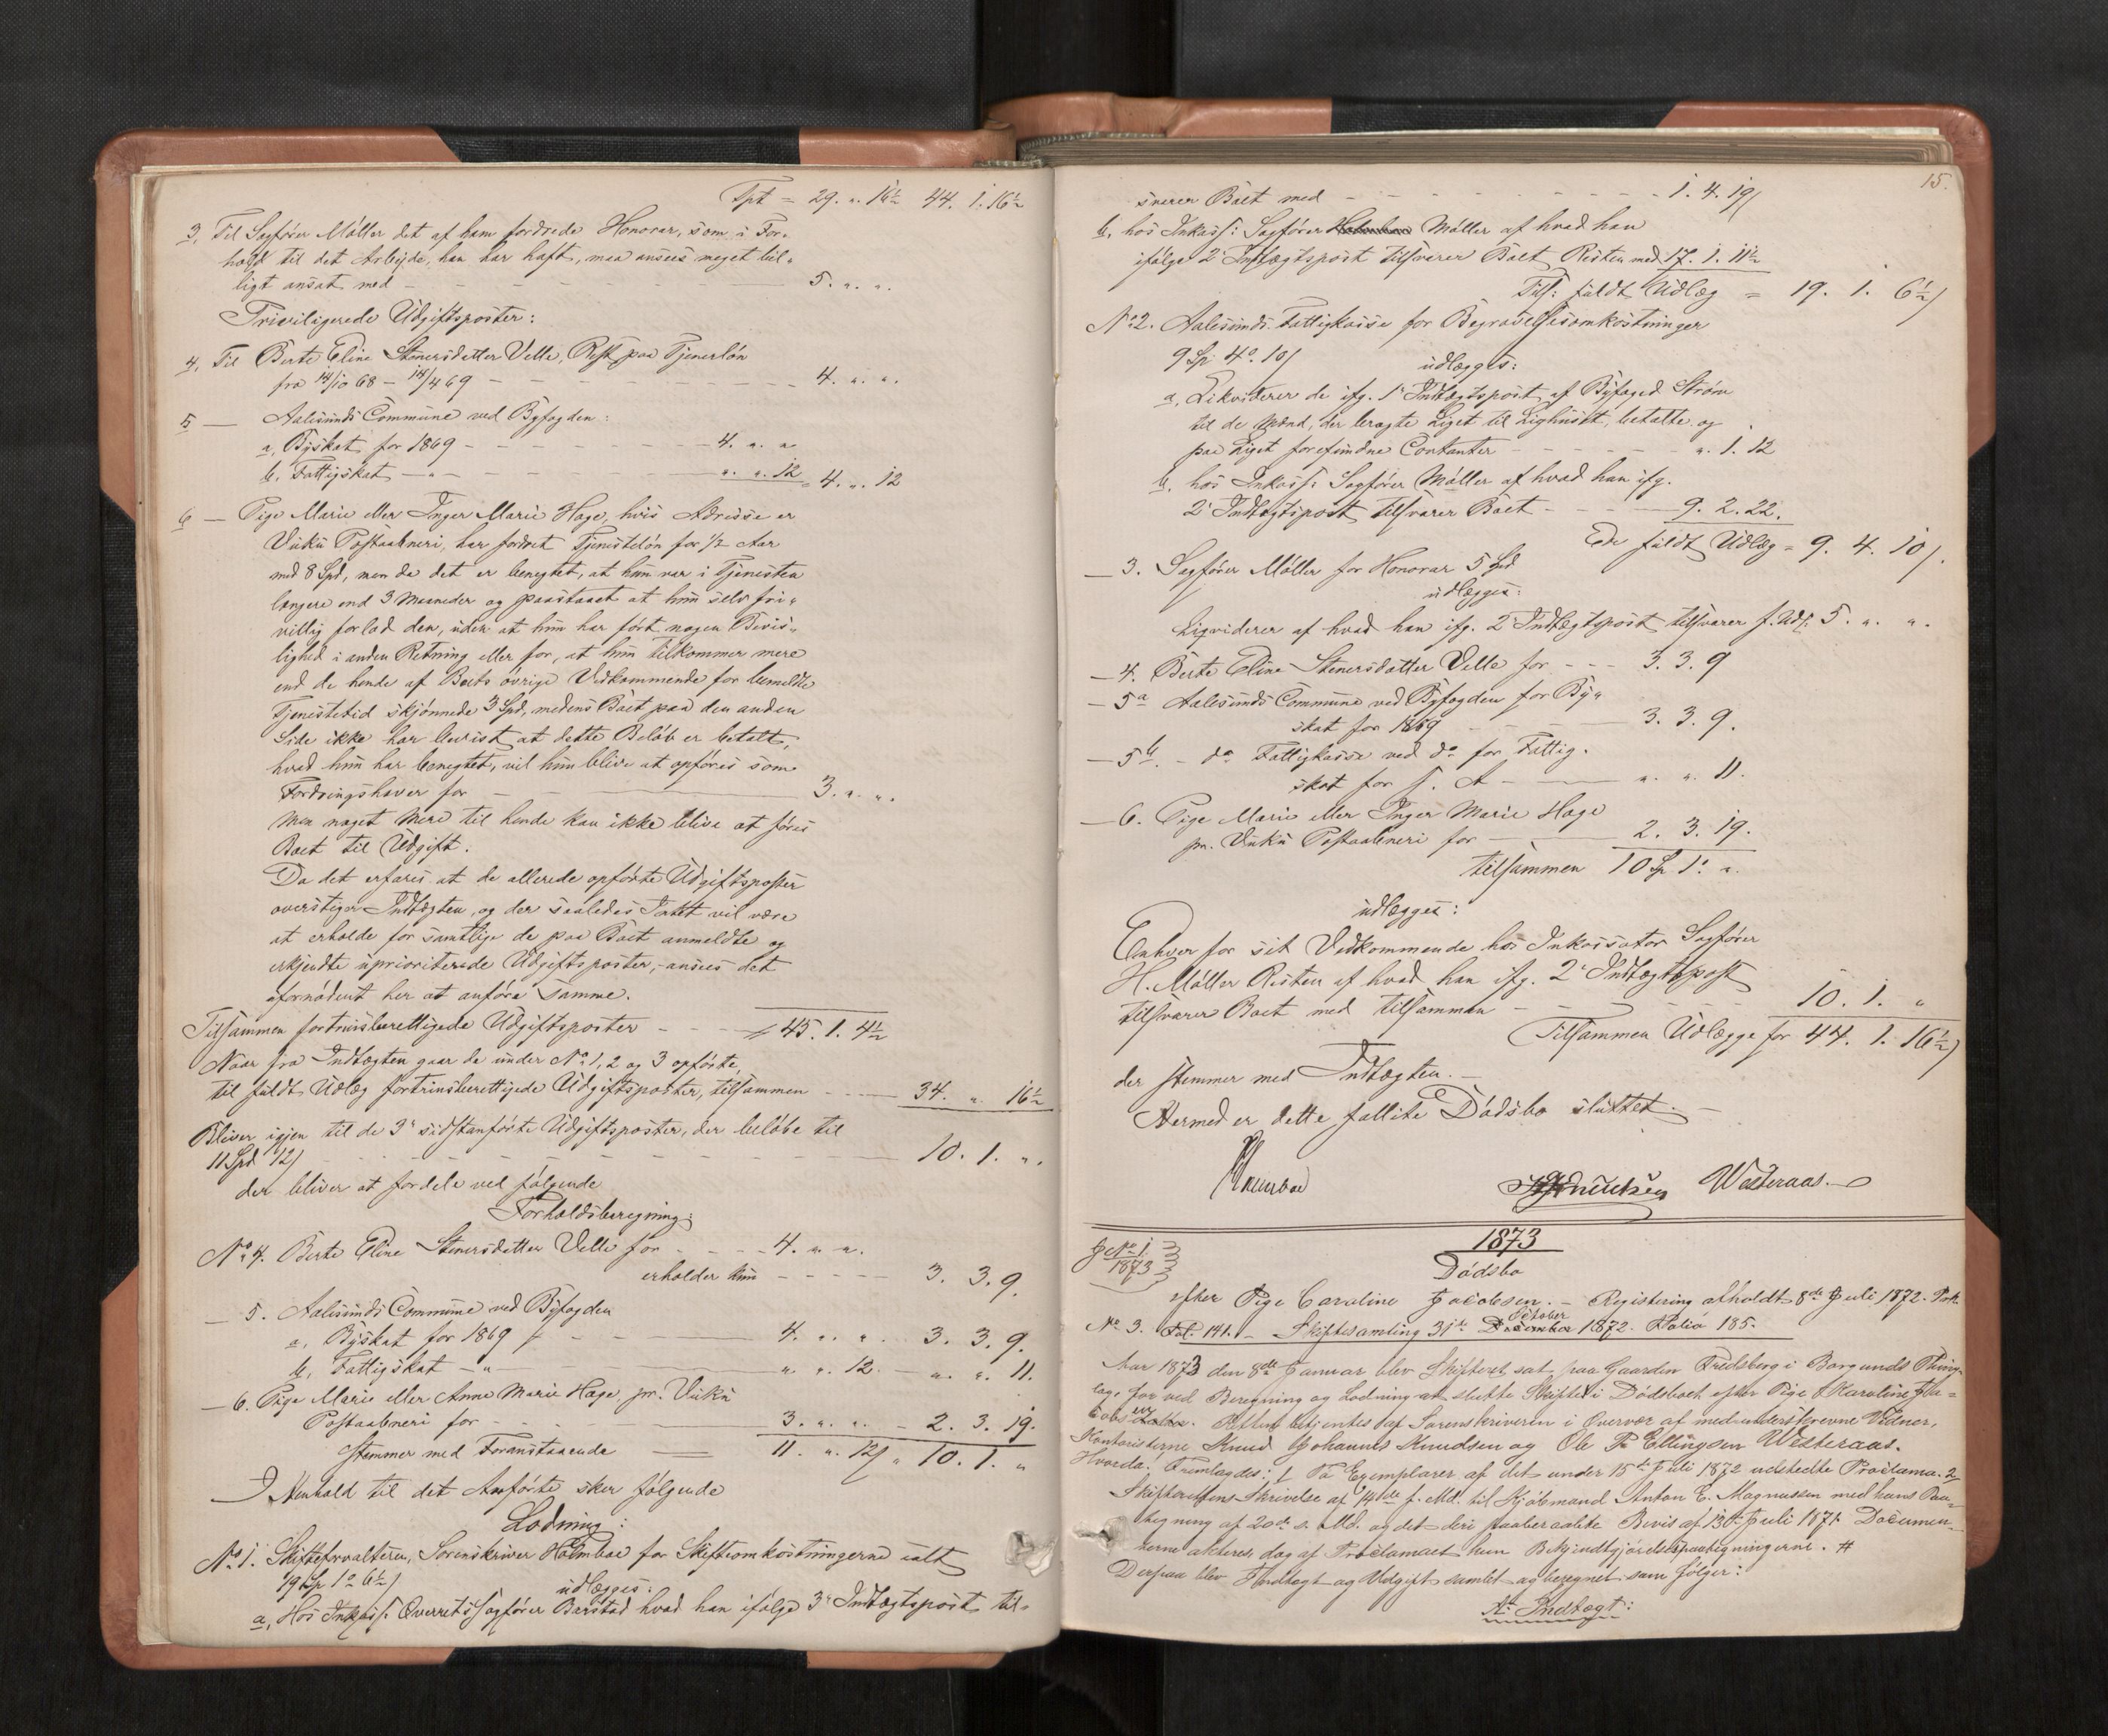 Tpt = 29. " 16½ 44. 1. 16½
3, Til Sagfører Møller det af ham fordrede Honorar, som i For-
hold til det Arbejde, han har haft, maa ansees meget bil-
ligt ansat med - - - 5. " ".
Priviligerede Udgiftsposter:
4, Til Berte Eline Stenersdatter Velle, Rest paa Tjenerløn
fra 14/10 68 - 14/4 69 - - - 4. " ".
5 — Aalesunds Commune ved Byfogden:
a, Byskat for 1869 - - - 4. " "
b, Fattigskat — " - - - ". ". 12 = 4. ". 12
6 — Pige Marie eller Inger Marie Hage, hvis Adresse er
Vuku Postaabneri, har fordret Tjenesteløn for 1/2 Aar
med 8 Spd, men da det er benegtet, at hun var i Tjenesten
længere end 3 Maaneder og paastaaet at hun selv fri-
villig forlod den, uden at hun har ført nogen Bevis-
lighed i anden Retning eller for, at hun tilkommer mere
end de hende af Boets øvrige Vedkommende for bemeldte
Tjenestetid skjønnede 3 Spd, medens Boet paa den anden
Side ikke har bevist at dette Beløb er betalt,
hvad hun har benegtet, vil hun blive at opføres som
Fordringshaver for - - - 3. ". ".
men noget mere til hende kan ikke blive at føres
Boet til Udgift.
Da det erfares at de allerede opførte Udgiftsposter
overstiger Indtægten, og der saaledes Intet vil være
at erholde for samtlige de paa Boet anmeldte og
erkjendte uprioriterede Udgiftsposter, ansees det
ufornødent her at anføre samme.
Tilsammen fortrinsberettigede Udgiftsposter - - - 45. 1. 4½
Naar fra Indtægten gaar de under No 1, 2 og 3 opførte,
til fuldt Udlæg fortrinsberettigede Udgiftsposter, tilsammen - - - 34. ". 16½
Bliver igjen til de 3de sidstanførte Udgiftsposter, der beløbe til
11 Spd 12/ - - - 10. 1. ".
der bliver at fordele ved følgende
Forholdsberegning:
No 4. Berte Eline Stenersdatter Velle for - - - 4. " ".
erholder hun - - - 3. 3. 9.
— 5. Aalesunds Commune ved Byfogden
a, Byskat for 1869 - - - 4. ". ". 3. 3. 9.
b, Fattigskat - " - - - ". ". 12. - ". ". 11.
— 6. Pige Marie eller Anne Marie Hage, pr. Vuku
Postaabneri for - - - 3. ". ". - 2. 3. 19.
Stemmer med Foranstaaende = 11. ". 12/ " 10. 1. "
I Henhold til det Anførte sker følgende
Lodning:
No 1. Skifteforvalteren, Sorenskriver Holmboe for Skifteomkostningerne ialt
19 Sp 1 o 6½/
udlægges:
a, Hos Inkass: Overretssagfører Barstad hvad han ifølge 3die Indtægtspost til-
15.
svarer Boet med - - - 1. 4. 19/
b, hos Inkass: Sagfører Møller af hvad han
ifølge 2den Indtægtspost tilsvarer Boet Resten med 17. 1. 11½
Tils: fuldt Udlæg = 19. 1. 6½/
No 2. Aalesunds Fattigkasse for Begravelsesomkostninger
9 Sp 4 o. 10/ udlægges:
a, Likviderer de ifg. 1ste Indtægtspost af Byfoged Strøm
til de Mænd, der bragte Liget til Lighuset, betalte og
paa Liget forefundne Contanter - - - ". 1. 12
b, hos Inkass: Sagfører Møller af hvad han ifg.
2den Indtægtspost tilsvarer Boet - - - 9. 2. 22.
Er fuldt Udlæg = 9. 4. 10/.
— 3. Sagfører Møller for Honorar 5 Spd
udlægges:
Liqviderer af hvad han ifg. 2den Indtægtspost tilsvarer f. Udl: 5. ". ".
— 4. Berte Eline Stenersdatter Velle for - - - 3. 3. 9
— 5a Aalesunds Commune ved Byfogden for By-
skat for 1869 - - - 3. 3. 9.
— 5b. - do Fattigkasse ved do for Fattig-
skat for s. A - - - ". ". 11.
— 6. Pige Marie eller Inger Marie Hage
pr. Vuku Postaabneri for - - - 2. 3. 19.
tilsammen 10 Sp 1 o ".
udlægges:
Enhver for sit Vedkommende hos Inkassator Sagfører
H. Møller Resten af hvad han ifg. 2den Indtægtspost
tilsvarer Boet med tilsammen - - - 10. 1. "
Tilsammen Udlægge for 44. 1. 16½/
der stemmer med Indtægten. -
Hermed er dette fallite Dødsbo sluttet. -
Holmboe Westeraas.
1873
J No 1. 1873
Dødsbo
efter Pige Caroline Jacobsen. - Registrering afholdt 8de Juli 1872. Prot.
No 3. Fol. 141. - Skiftesamling 31te October 1872. Folio 185.
Aar 1873 den 8de Januar blev Skifteret sat paa Gaarden Fredsberg i Borgunds Thing-
lag, for ved Beregning og Lodning at slutte Skiftet i Dødsboet efter Pige Karoline Ja-
cobsen. Retten betjentes af Sorenskriveren i Overvær af medunderskrevne Vidner,
Kontoristerne Knud Johannes Knudsen og Ole P. Ellingsen Westeraas.
Hvorda: Fremlagdes: 1 To Exemplarer af det under 15de Juli 1872 udstedte Proclama. 2
Skifterettens Skrivelse af 14de f. Md. til Kjøbmand Anton E. Magnussen med hans Paa-
tegning af 20de s. Md. og det deri paaberaabte Bevis af 13de Juli 1871. Documen-
terne akteres, dog af Proclamaet kun Bekjendtgjørelsespaategningerne. #
Derpaa blev Indtægt og Udgift samlet og beregnet som følger:
A. Indtægt: